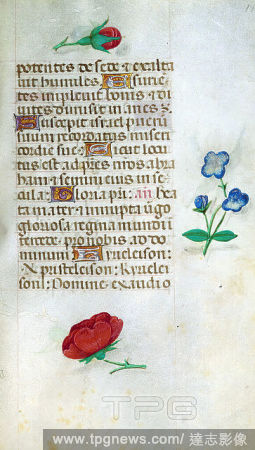 potentes de sede et exalta
uit humiles Esurie
tes impleuit bonis et di
uites dimisit inanes
Suscepit israel pueru
suum recordatus miseri
cordie sue Sicut locu
tus est ad patres nros abra
ham et semini eius in se
cula Gloria pri an Bea
ta mater et innupta uirgo
gloriosa regina mundi in
tercede pro nobis ad do
minum Kyrieleison
Xpisteleison: Kyriele
ison: Domine exaudi o
TPG
www.tpgnews.com/ 達志影像